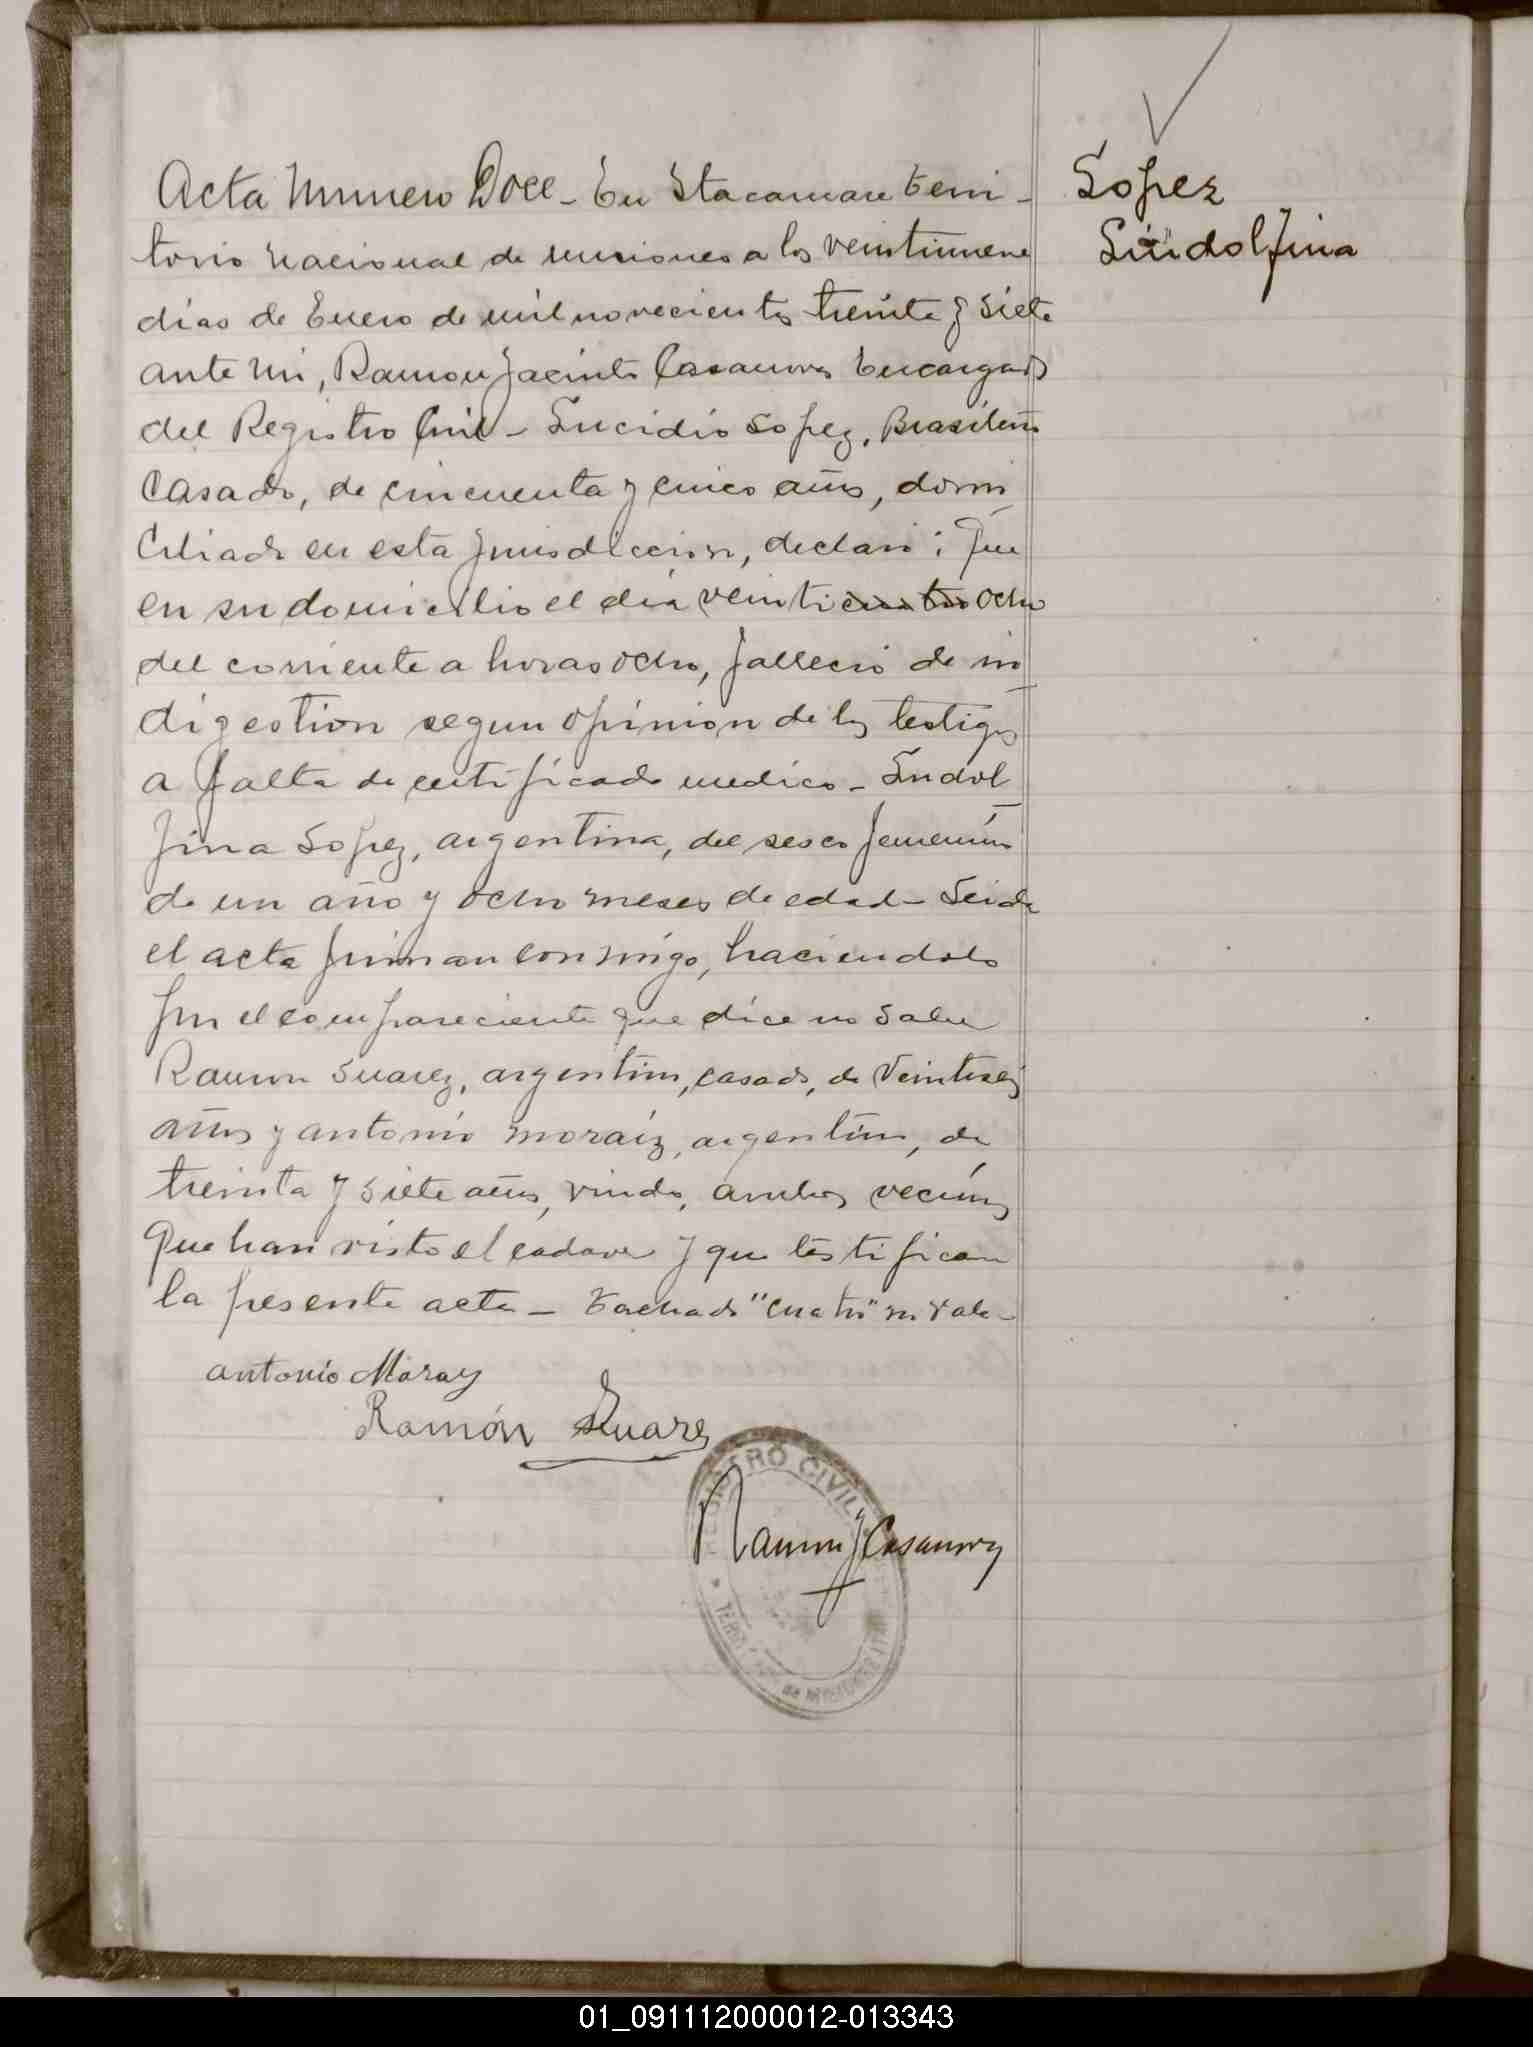 Acta Numero Doce - En Itacaruare terri-
torio nacional de misiones a los veintinueve
dias de Enero de mil novecientos treinta y siete
ante mi, Ramon Jacinto Casanova Encargado
del Registro Civil - Lucidio Lopez, Brasileño
Casado, de cincuenta y cinco años, domi
ciliado en esta jurisdiccion, declaró: que
en su domicilio el día veinticuatro ocho
del corriente a horas ocho, falleció de in
digestion segun opinion de los testigos
a falta de certificado medico - Lindol
fina Lopez, argentina, del sexo femenino
de un año y ocho meses de edad - Leida
el acta firman conmigo, haciendolo
por el compareciente que dice no saber
Ramon Suarez, argentino, casado, de veintiseis
años y antonio moraiz, argentino, de
treinta y siete años, viudo, ambos vecinos
que han visto el cadaver y que testifican
la presente acta - tachado "cuatro" no vale -
antonio Moray
Ramón Suarez
REGISTRO CIVIL
Ramon J Casanova
de MISIONES
Lopez
Lindolfina
01_091112000012-013343